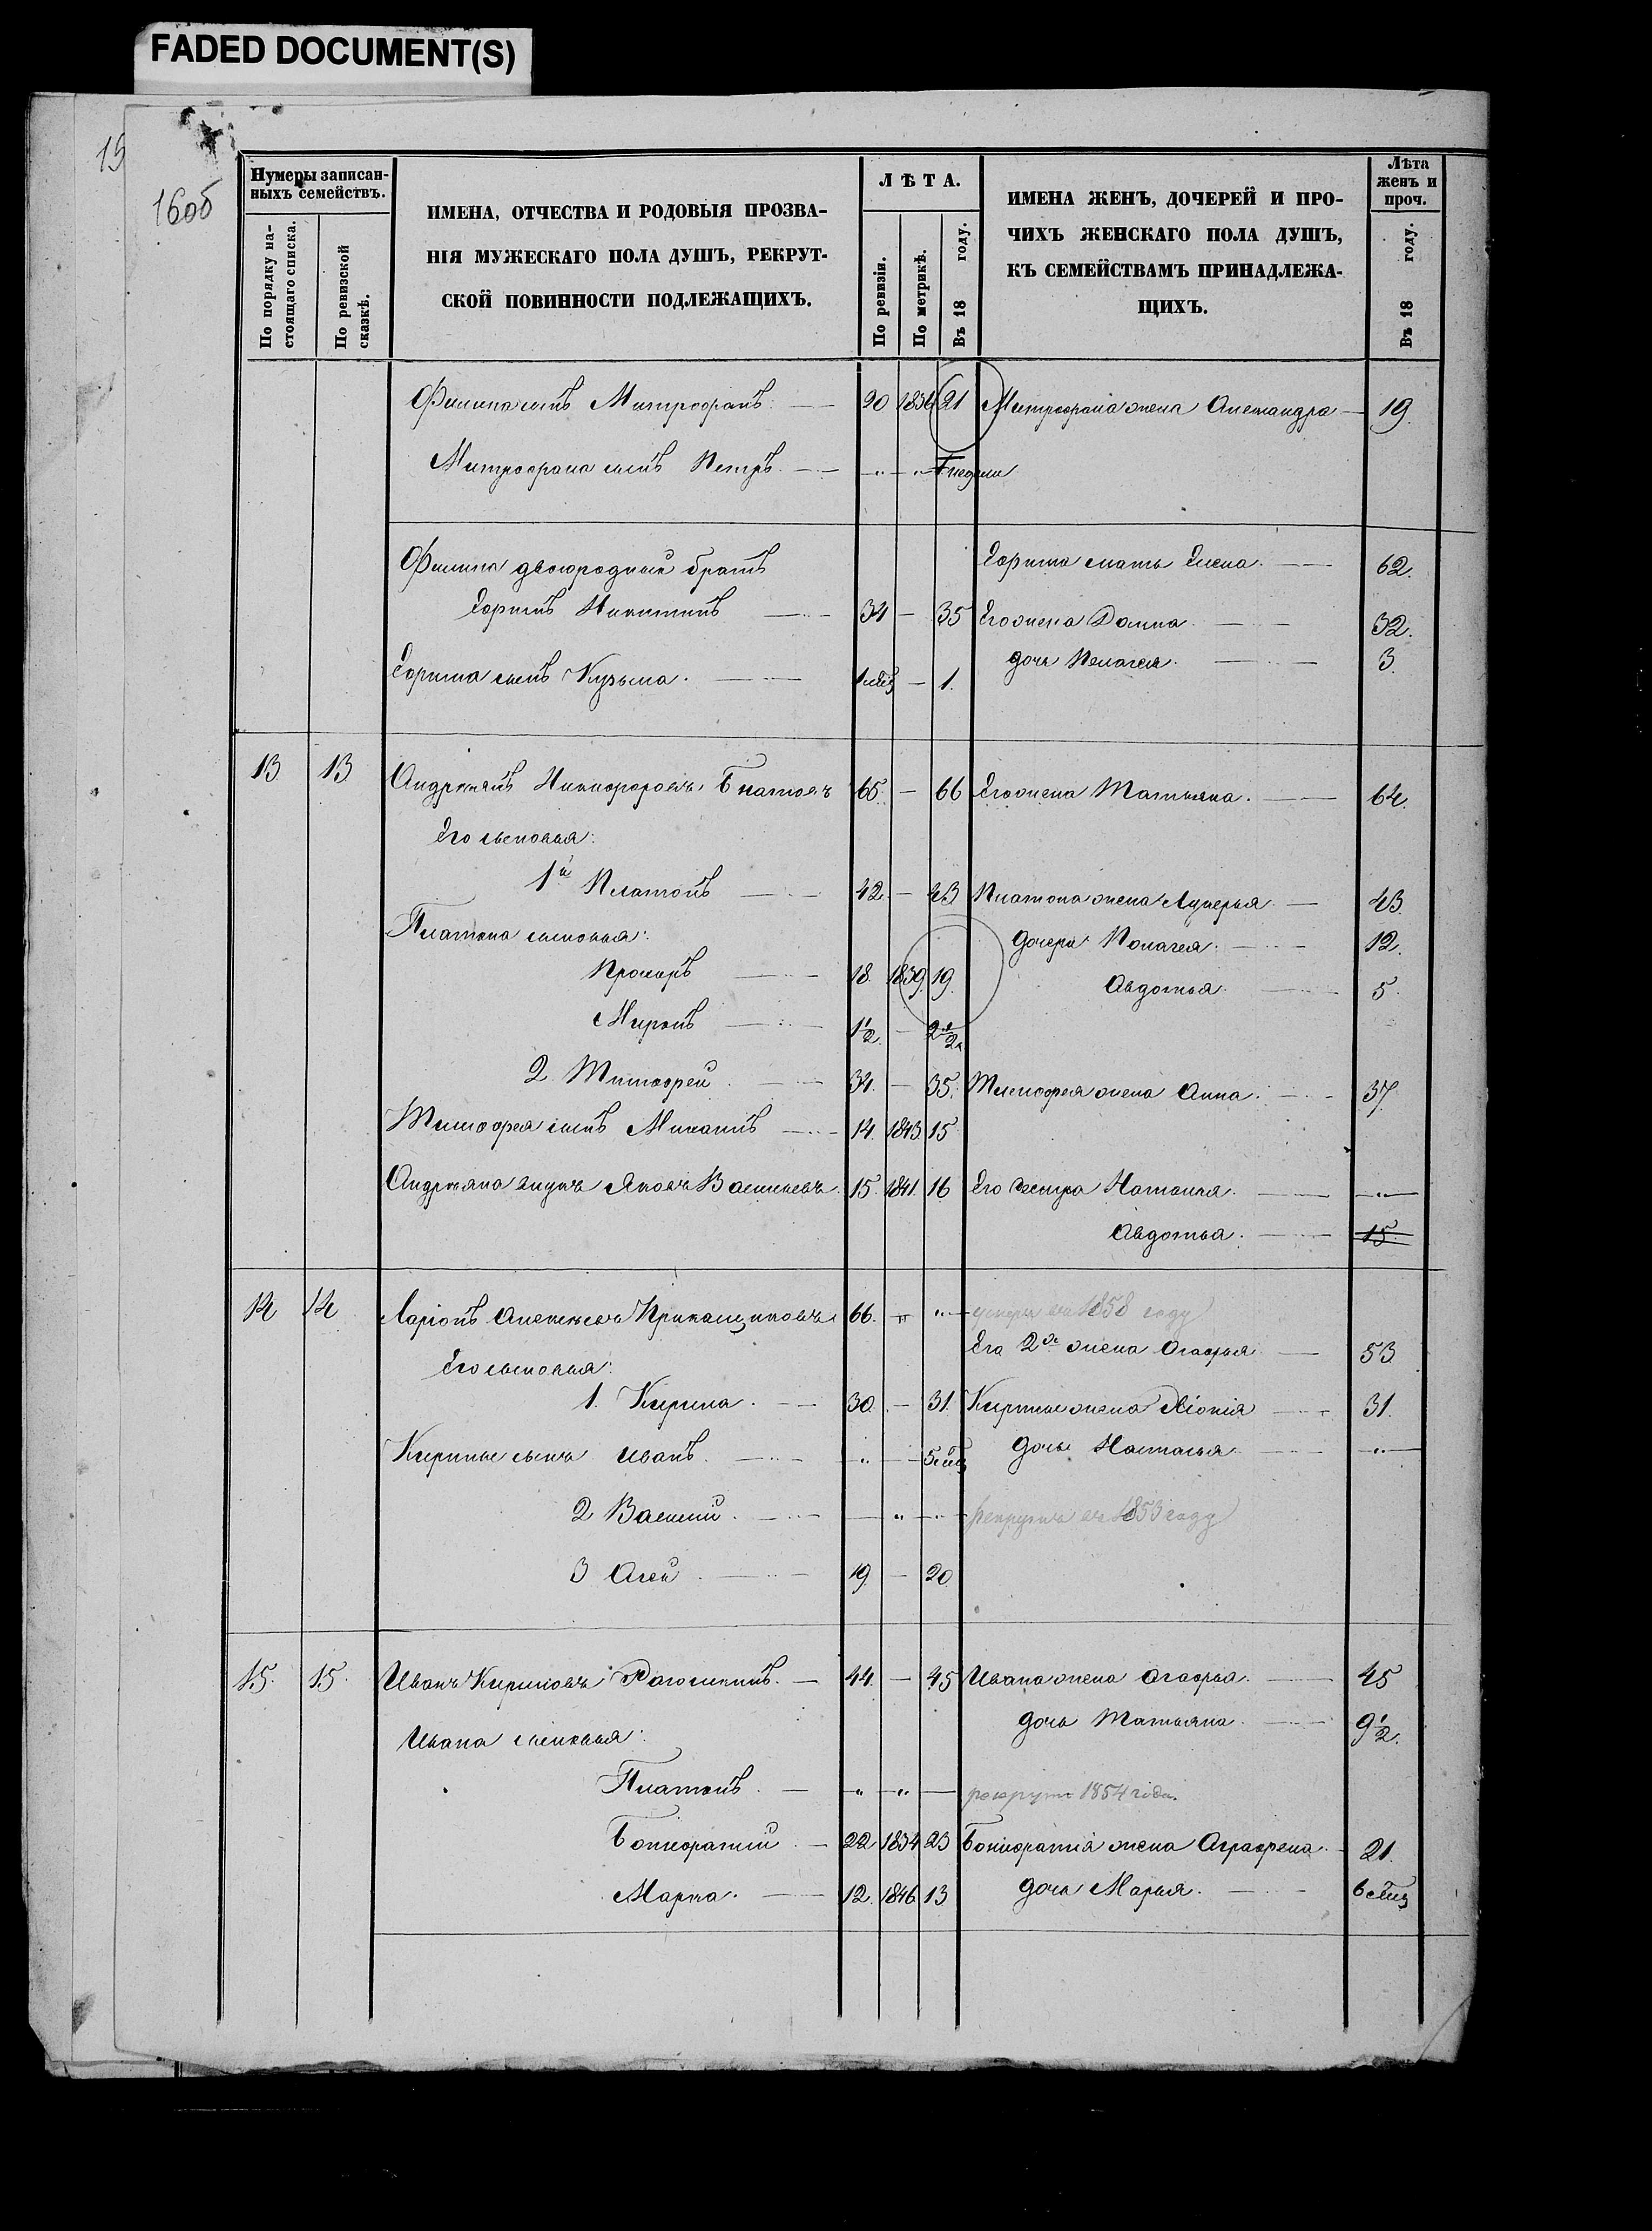 FADED DOCUMENT(S)
15
16об
Нумеры записан-
ныхъ семействъ.
По порядку на-
стоящаго списка.
По ревизской
сказкѣ.
ИМЕНА, ОТЧЕСТВА И РОДОВЫЯ ПРОЗВА-
НІЯ МУЖЕСКАГО ПОЛА ДУШЪ, РЕКРУТ-
СКОЙ ПОВИННОСТИ ПОДЛЕЖАЩИХЪ.
ЛѢТА.
По ревизіи.
По метрикѣ.
Въ 18 году.
ИМЕНА ЖЕНЪ, ДОЧЕРЕЙ И ПРО-
ЧИХЪ ЖЕНСКАГО ПОЛА ДУШЪ,
КЪ СЕМЕЙСТВАМЪ ПРИНАДЛЕЖА-
ЩИХЪ.
Лѣта
женъ и
проч.
Въ 18 году.
Филипа сынъ Митрофанъ. — 20 1836 21 Митрофана жена Александра — 19.
Митрофана сынъ Петръ. — " " недели
Филипа двоюродный братъ
Ефима мать Елена. — 62.
Ефимъ Никитинъ — 34 — 35 Его жена Домна. — 32.
дочь Пелагея. — 3.
Ефима сынъ Кузьма. — 1 мѣс — 1.
13. 13. Андреянъ Никифоровъ 65. — 66 Его жена Татьяна. — 64.
Его сыновья:
1й Платонъ — 42. — 43 Платона жена Лукерья — 43.
Платона сыновья: дочери Полагея. — 12.
Прохоръ — 18. 1839. 19. Авдотья. — 5.
Миронъ — 1 1/2. — 2 1/2
2. Тимофей. — 34. — 35. Тимофея жена Анна. — 37.
Тимофея сынъ Михаилъ — 14. 1843. 15.
Андреяна внукъ Яковъ Васильевъ. 15. 1841. 16 Его сестра Наталья. — "
Авдотья. — 15.
14 14 Ларіонъ Алексѣевъ Прикащиковъ 66. — " — умеръ въ 1858 году
Его 2я жена Агафья — 53.
Его сыновья:
1. Кирила. — 30. — 31. Кирилы жена — 31.
Кирилы сынъ Иванъ. — " — 5 мѣс дочь Настасья — "
2 Василий. — " — " — рекрутъ въ 1853 году
3 Агей. — 19. — 20.
15. 15. Иванъ Кириловъ Рагошкинъ. — 44. — 45 Ивана жена Агафья. — 45
дочь Татьяна. — 9 1/2.
Ивана сыновья:
Платонъ. — " — " — рекрутъ 1854 года.
22 1834 23 жена Аграфена. — 21.
Марка. — 12. 1846. 13 дочь Марья. — 6 мѣс